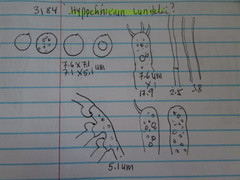 3184 Hypochnicium lundellii?
7.6 x 7.1
7.1 x 5.1 um
7.6 um
x
17.9
2.5
3.8
5.1 um